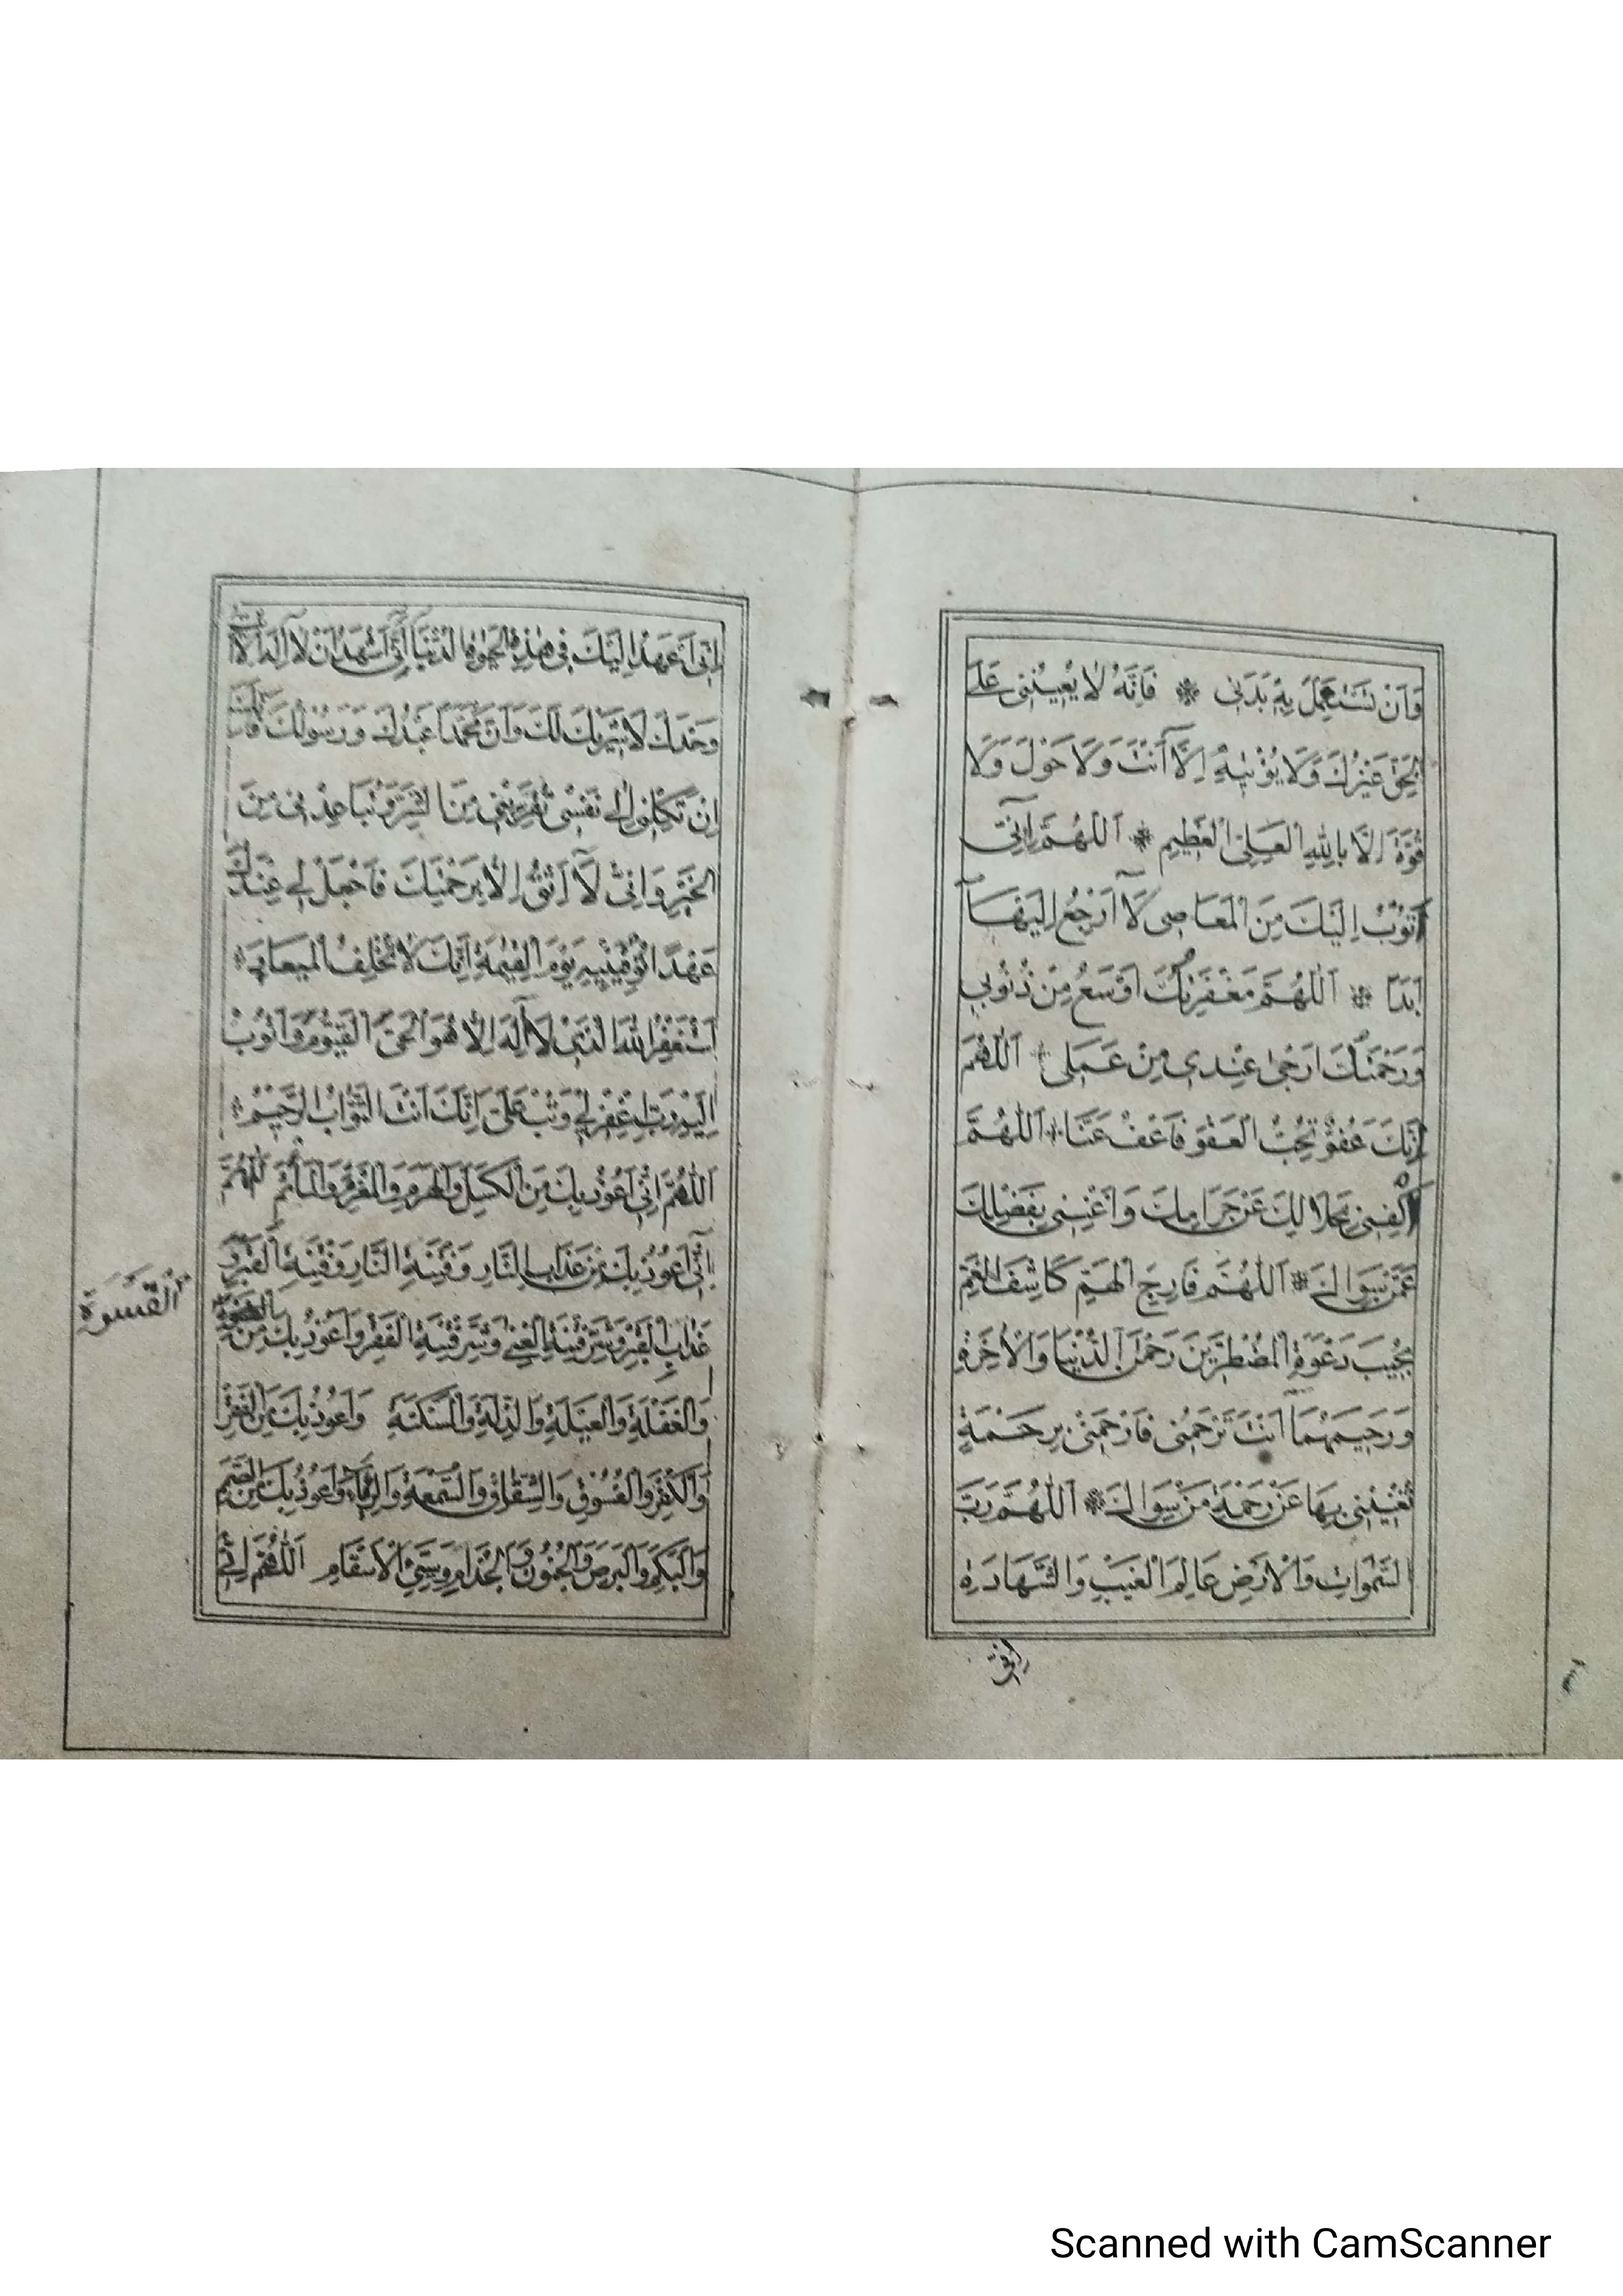 وَاَنْ تَسْتَعْمِلَ بِهِ بَدَنِي ❋ فَاِنَّهُ لَا يُعِيْنُنِي عَلَى
الْحَقِّ غَيْرُكَ وَلَا يُؤْتِيْهِ اِلَّا اَنْتَ وَلَا حَوْلَ وَلَا
قُوَّةَ اِلَّا بِاللّٰهِ الْعَلِيِّ الْعَظِيْمِ ❋ اَللّٰهُمَّ اِنِّي
اَتُوْبُ اِلَيْكَ مِنَ الْمَعَاصِي لَا اَرْجِعُ اِلَيْهَا
اَبَدًا ❋ اَللّٰهُمَّ مَغْفِرَتُكَ اَوْسَعُ مِنْ ذُنُوْبِي
وَرَحْمَتُكَ اَرْجٰى عِنْدِي مِنْ عَمَلِي ❋ اَللّٰهُمَّ
اِنَّكَ عَفُوٌّ تُحِبُّ الْعَفْوَ فَاعْفُ عَنَّا ❋ اَللّٰهُمَّ
اكْفِنِي بِحَلَالِكَ عَنْ حَرَامِكَ وَاَغْنِنِي بِفَضْلِكَ
عَمَّنْ سِوَاكَ ❋ اَللّٰهُمَّ فَارِجَ الْهَمِّ كَاشِفَ الْغَمِّ
مُجِيْبَ دَعْوَةِ الْمُضْطَرِّيْنَ رَحْمٰنَ الدُّنْيَا وَالْاٰخِرَةِ
وَرَحِيْمَهُمَا اَنْتَ تَرْحَمُنِي فَارْحَمْنِي بِرَحْمَةٍ
تُغْنِيْنِي بِهَا عَنْ رَحْمَةِ مَنْ سِوَاكَ ❋ اَللّٰهُمَّ رَبَّ
السَّمٰوَاتِ وَالْاَرْضِ عَالِمَ الْغَيْبِ وَالشَّهَادَةِ
اِنِّي
اِنِّي اَعْهَدُ اِلَيْكَ فِي هٰذِهِ الْحَيٰوةِ الدُّنْيَا اَنِّي اَشْهَدُ اَنْ لَا اِلٰهَ اِلَّا اَنْتَ
وَحْدَكَ لَا شَرِيْكَ لَكَ وَاَنَّ مُحَمَّدًا عَبْدُكَ وَرَسُوْلُكَ فَاِنَّكَ
اِنْ تَكِلْنِي اِلٰى نَفْسِي تُقَرِّبْنِي مِنَ الشَّرِّ وَتُبَاعِدْنِي مِنَ
الْخَيْرِ وَاِنِّي لَا اَثِقُ اِلَّا بِرَحْمَتِكَ فَاجْعَلْ لِي عِنْدَكَ
عَهْدًا تُوَفِّيْنِيْهِ يَوْمَ الْقِيٰمَةِ اِنَّكَ لَا تُخْلِفُ الْمِيْعَادَ
اَسْتَغْفِرُ اللّٰهَ الَّذِي لَا اِلٰهَ اِلَّا هُوَ الْحَيُّ الْقَيُّوْمُ وَاَتُوْبُ
اِلَيْهِ رَبِّ اغْفِرْ لِي وَتُبْ عَلَيَّ اِنَّكَ اَنْتَ التَّوَّابُ الرَّحِيْمُ
اَللّٰهُمَّ اِنِّي اَعُوْذُ بِكَ مِنَ الْكَسَلِ وَالْهَرَمِ وَالْمَغْرَمِ وَالْمَأْثَمِ اَللّٰهُمَّ
اِنِّي اَعُوْذُ بِكَ مِنْ عَذَابِ النَّارِ وَفِتْنَةِ النَّارِ وَفِتْنَةِ الْقَبْرِ وَ
عَذَابِ الْقَبْرِ وَشَرِّ فِتْنَةِ الْغِنٰى وَشَرِّ فِتْنَةِ الْفَقْرِ وَاَعُوْذُ بِكَ مِنَ
اَلْقَسْوَةِ
وَالْغَفْلَةِ وَالْعَيْلَةِ وَالذِّلَّةِ وَالْمَسْكَنَةِ وَاَعُوْذُ بِكَ مِنَ الْفَقْرِ
وَالْكُفْرِ وَالْفُسُوْقِ وَالشِّقَاقِ وَالسُّمْعَةِ وَالرِّيَاءِ وَاَعُوْذُ بِكَ مِنَ الصَّمَمِ
وَالْبَكَمِ وَالْبَرَصِ وَالْجُنُوْنِ وَالْجُذَامِ وَسَيِّئِ الْاَسْقَامِ اَللّٰهُمَّ اِنِّي
Scanned with CamScanner